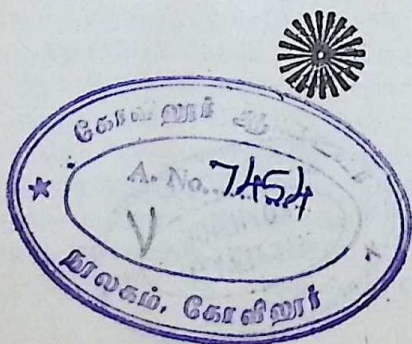 கோவிலூர்
A. No. 7454
நூலகம், கோவிலூர்